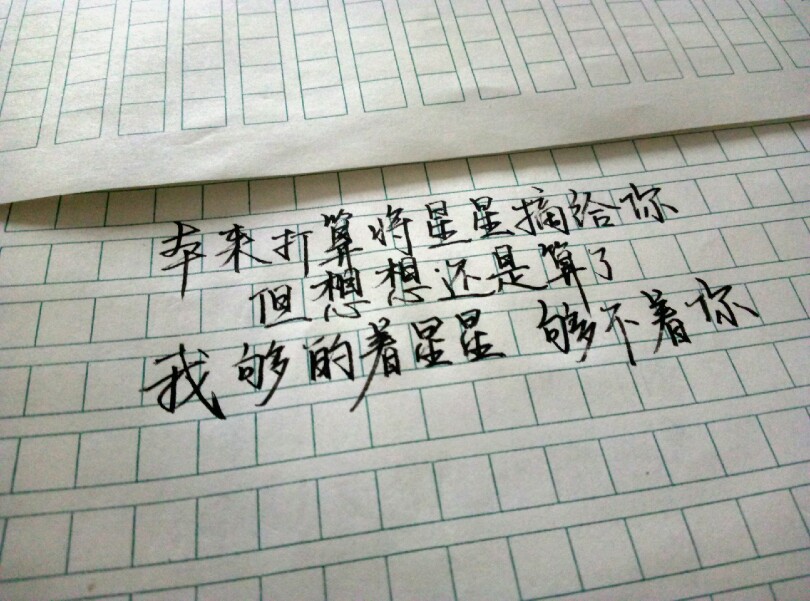 本来打算将星星摘给你
但想想还是算了
我够的着星星 够不着你